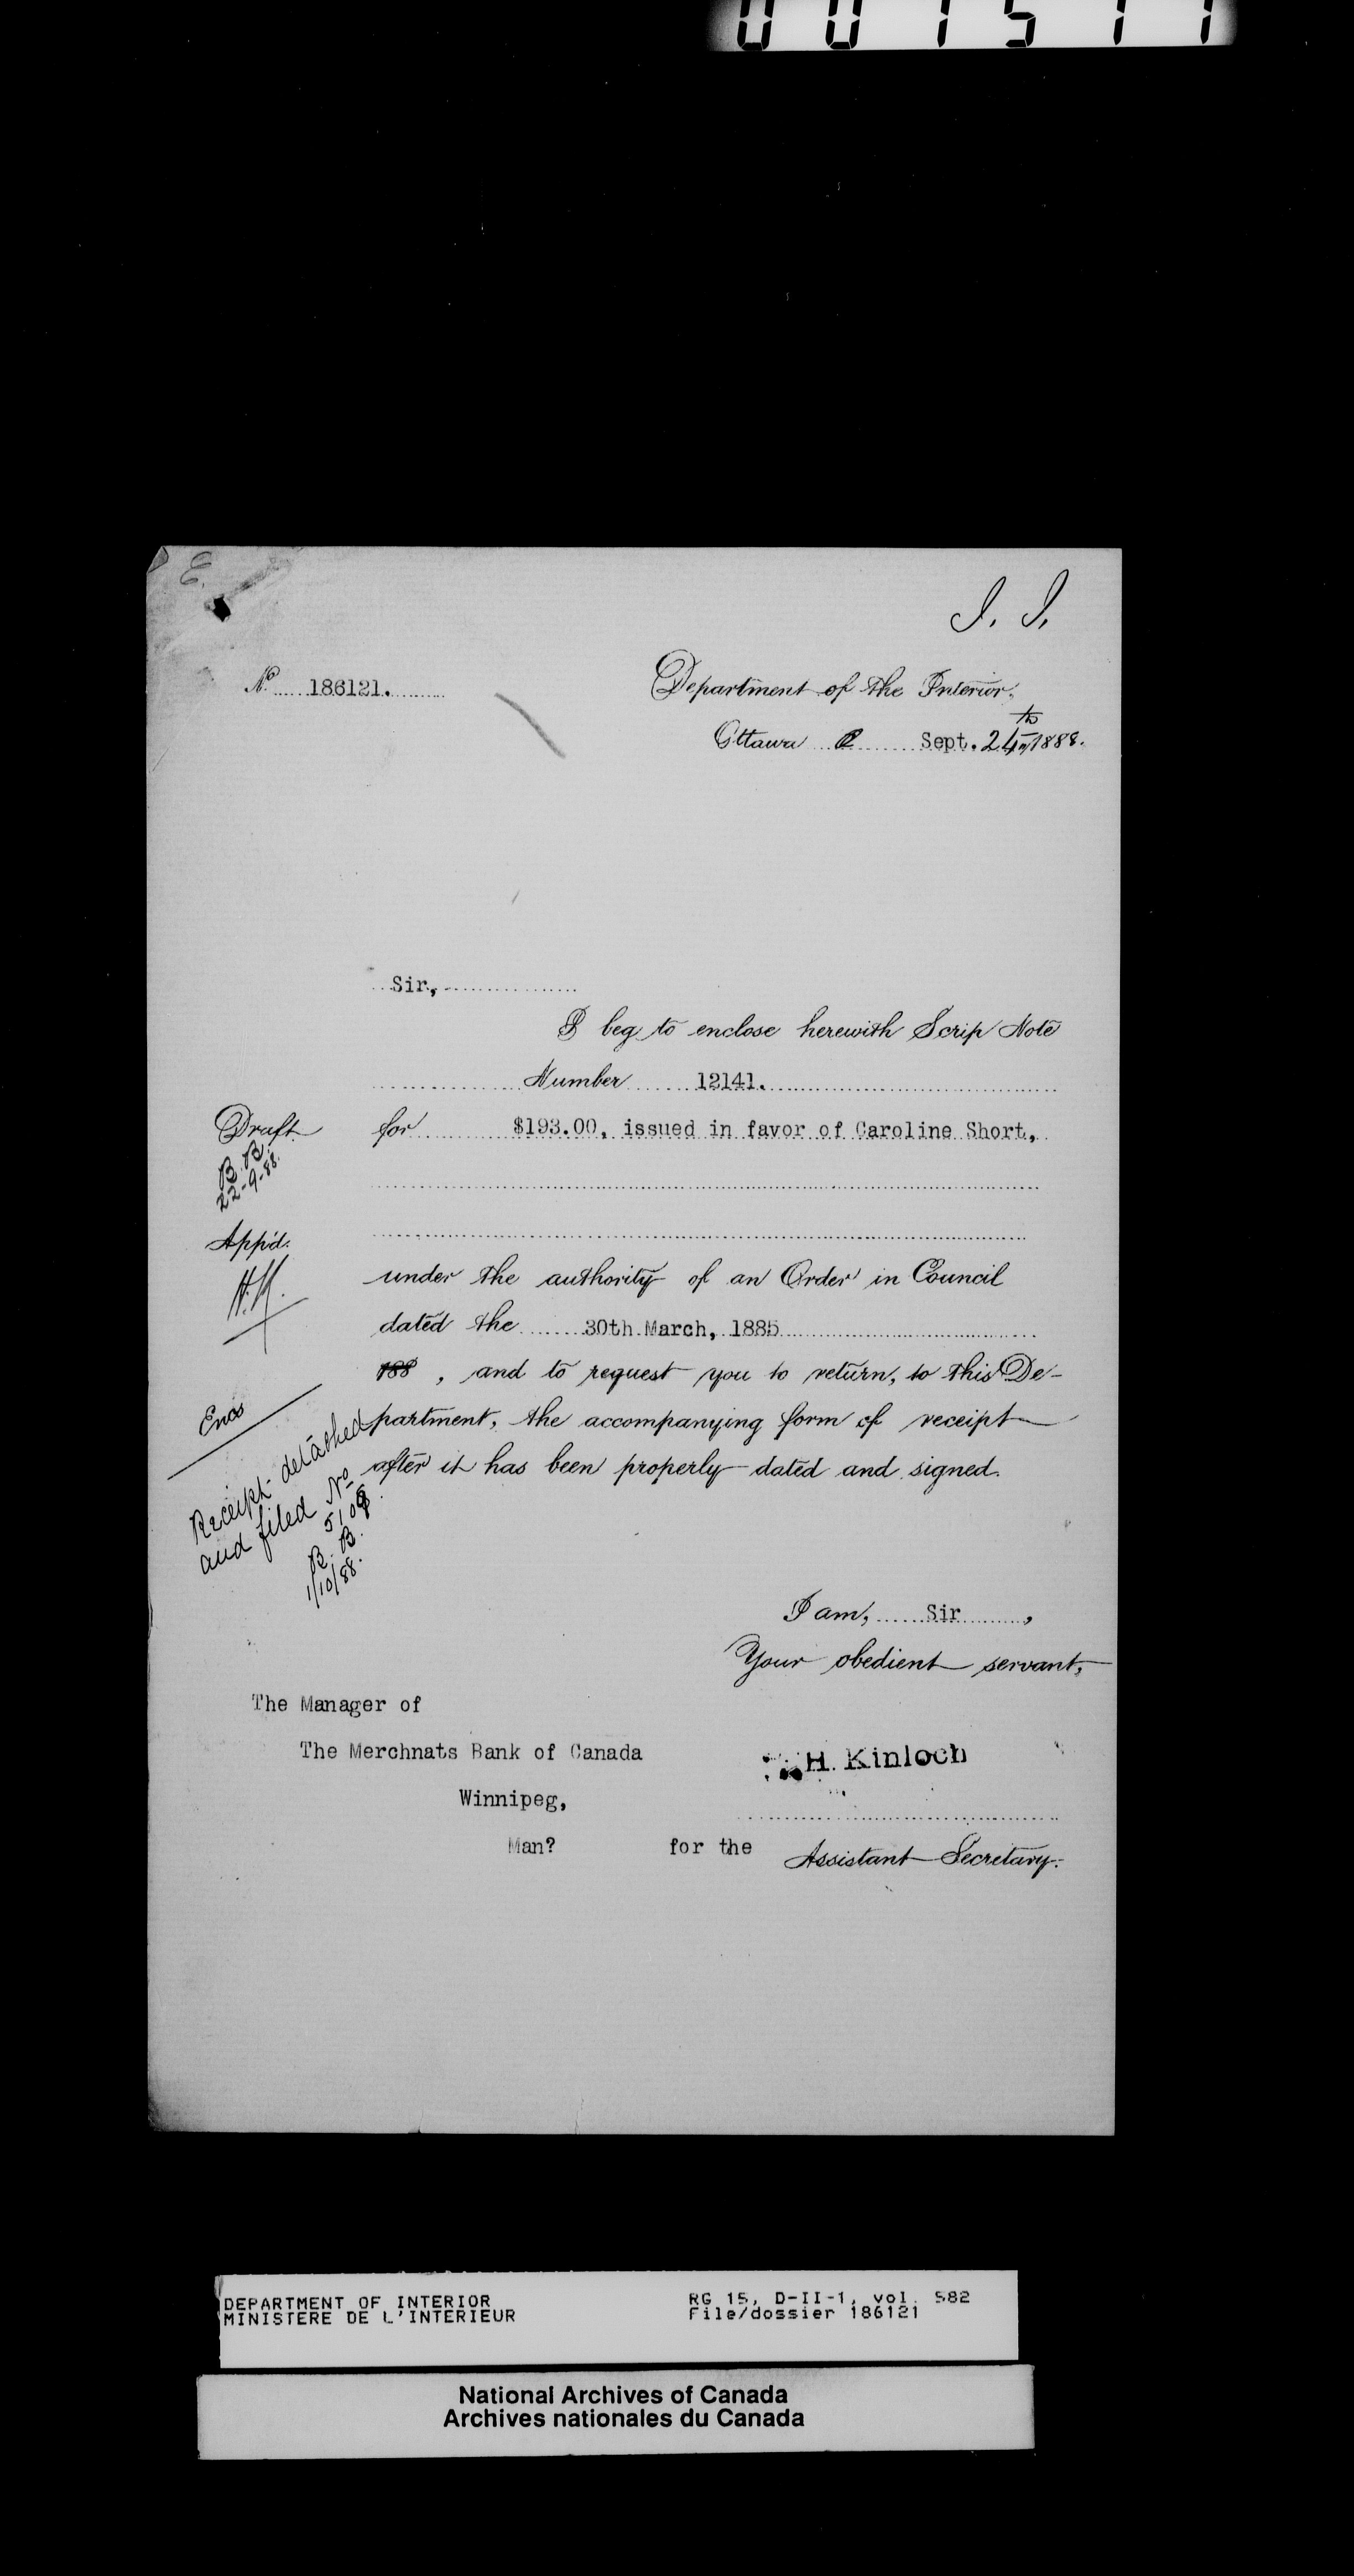 001511
E.
J. J.
No 186121.
Department of the Interior.
Ottawa Sept. 24th 1888.
Sir,
I beg to enclose herewith Scrip Note
Number 12141.
Draft
B.B.
22-9-88.
for $193.00, issued in favor of Caroline Short,
App'd.
H.K.
under the authority of an Order in Council
dated the 30th March, 1885
188 , and to request you to return, to this De-
partment, the accompanying form of receipt
after it has been properly dated and signed.
Encs
Receipt detached
and filed No
B.B.
1/10/88.
I am, Sir ,
Your obedient servant,
The Manager of
The Merchnats Bank of Canada
Winnipeg,
Man?
H. Kinloch
for the Assistant Secretary.
DEPARTMENT OF INTERIOR
MINISTERE DE L'INTERIEUR
RG 15, D-II-1, vol. 582
File/dossier 186121
National Archives of Canada
Archives nationales du Canada